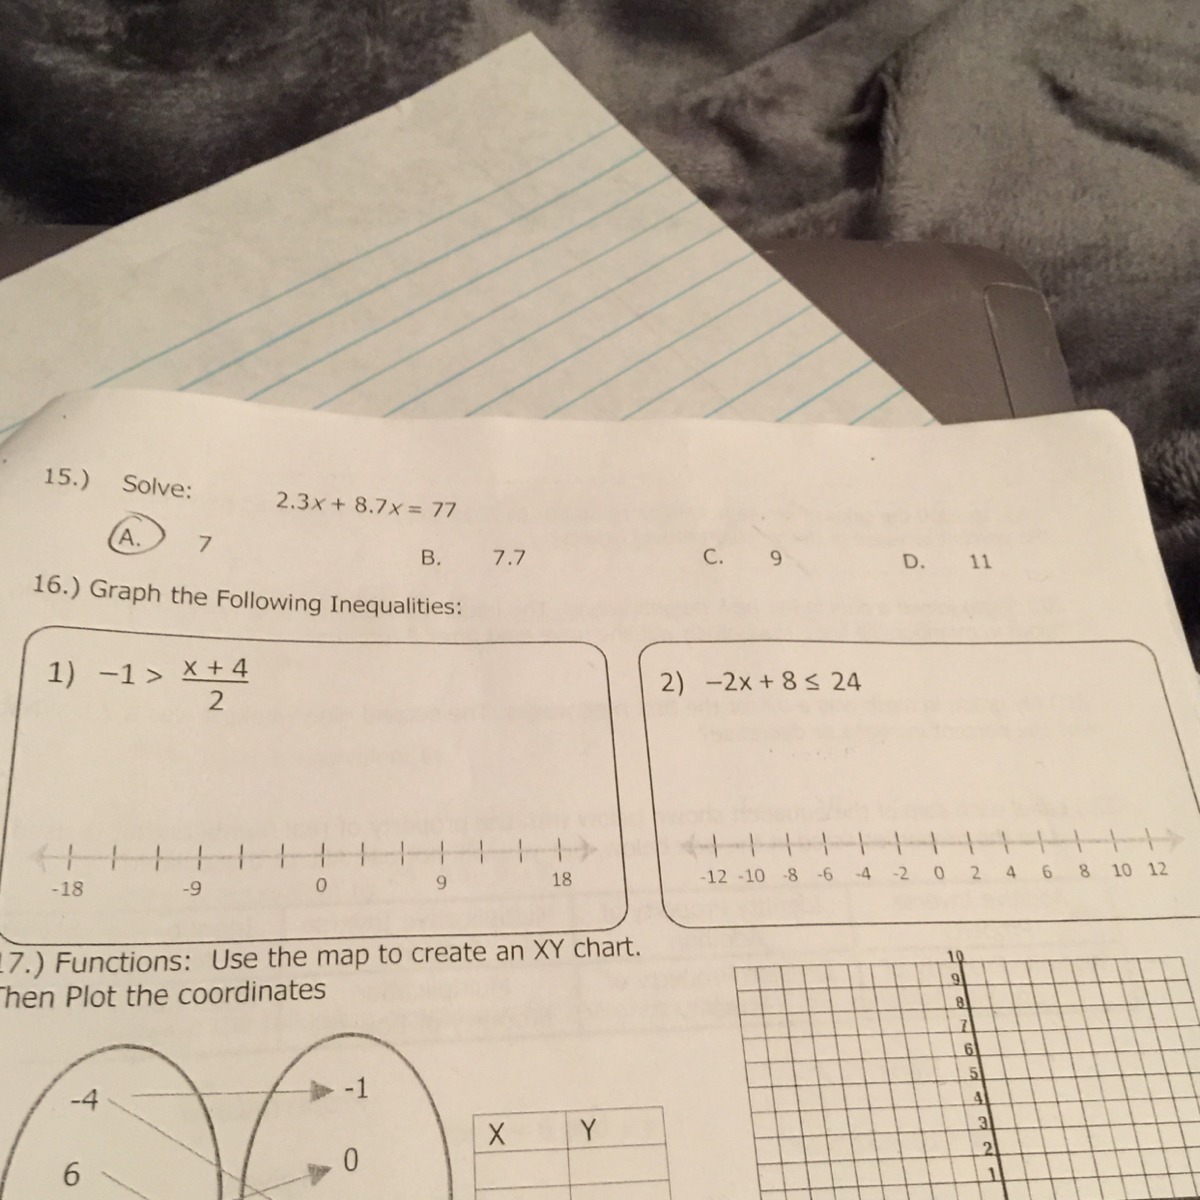 15.) Solve: 2.3x + 8.7x = 77
A. 7 B. 7.7 C. 9 D. 11
16.) Graph the Following Inequalities:
1) −1 > x + 4
2
2) −2x + 8 ≤ 24
-18 -9 0 9 18
-12 -10 -8 -6 -4 -2 0 2 4 6 8 10 12
17.) Functions: Use the map to create an XY chart.
Then Plot the coordinates
-4 -1
6 0
X Y
10
9
8
7
6
5
4
3
2
1